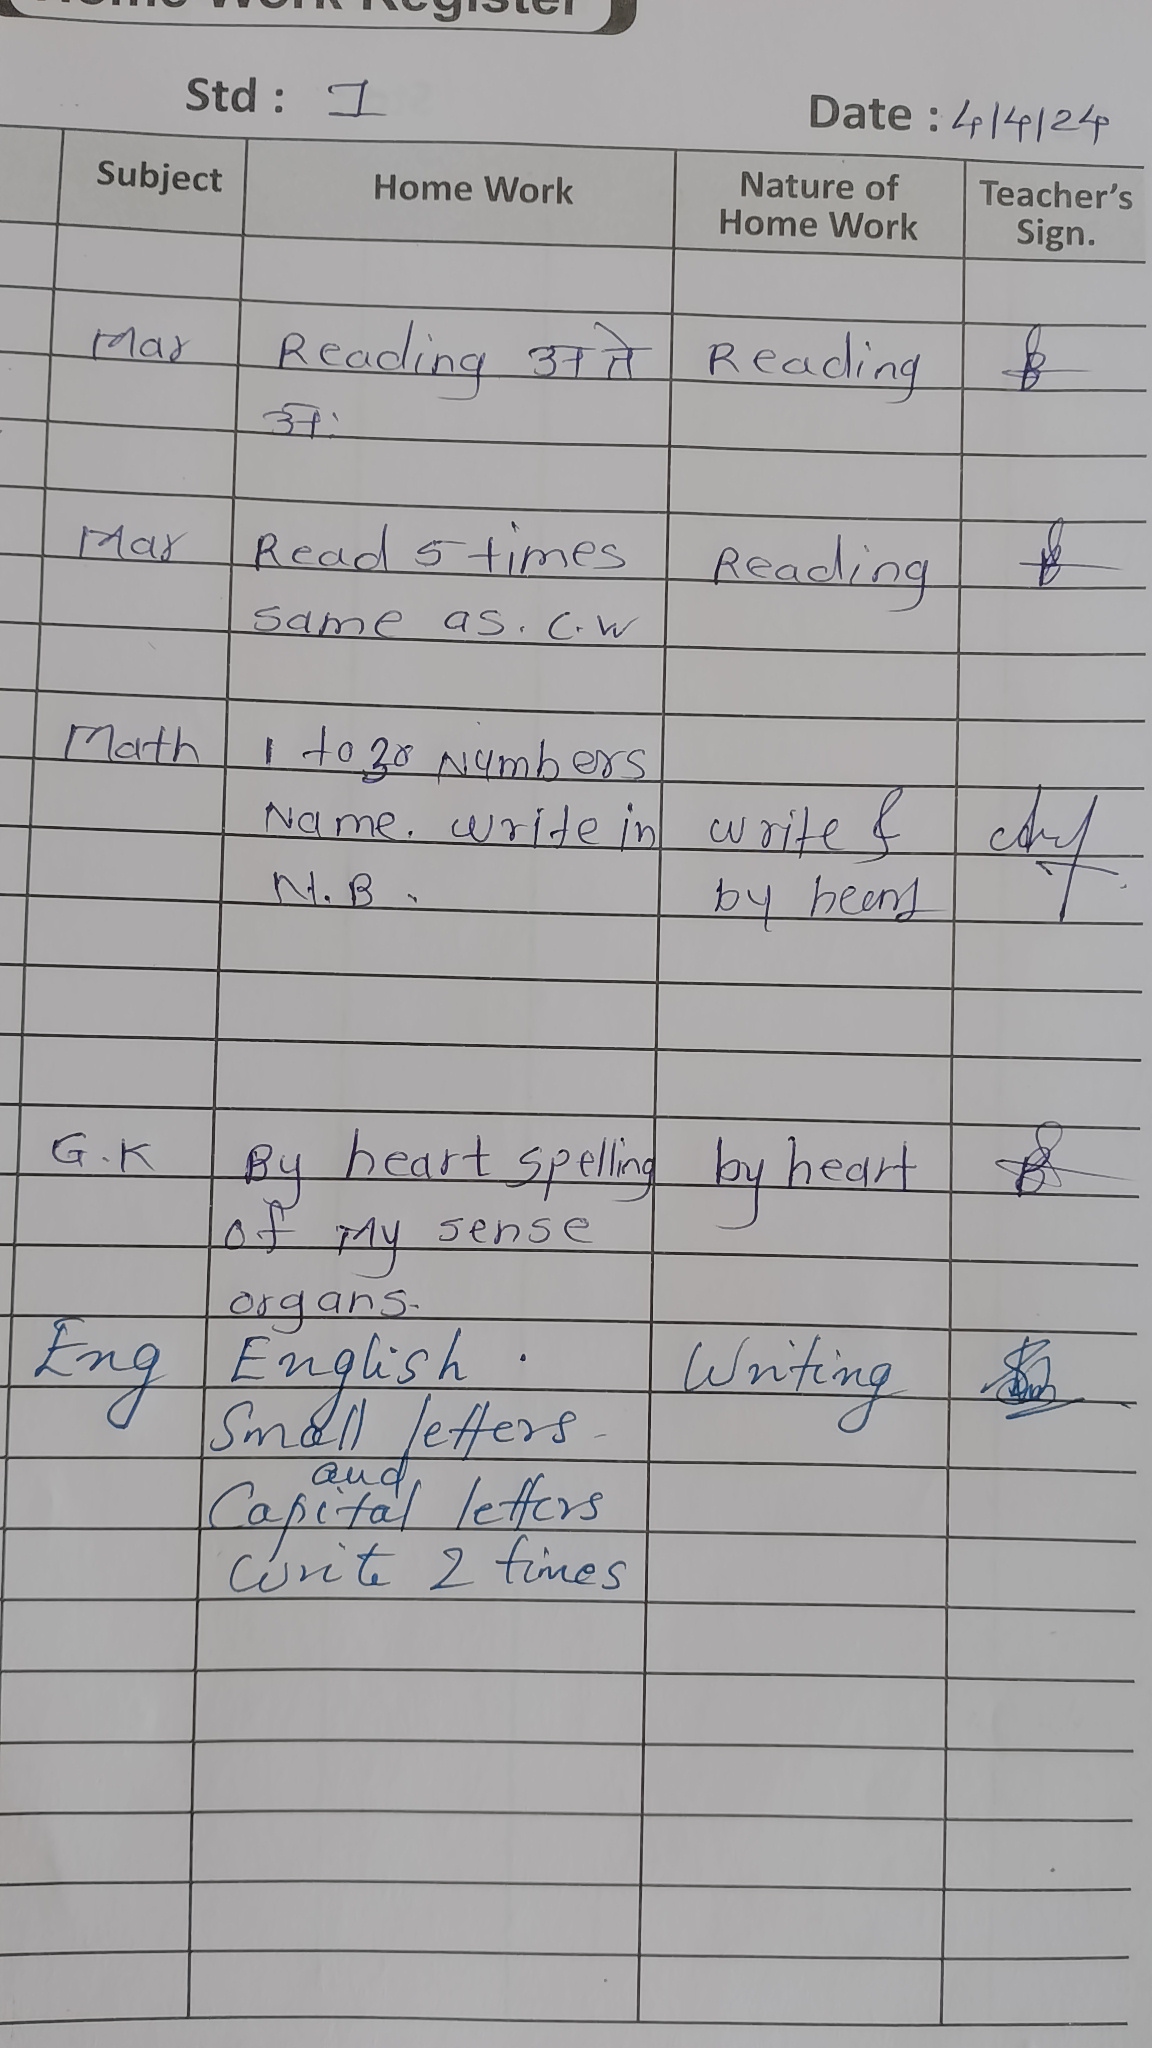 Home Work Register
Std : I
Date : 4/4/24
Subject Home Work Nature of Home Work Teacher's Sign.
Mar Reading अ ते Reading
अः
Mar Read 5 times Reading
same as. C.W
Math 1 to 30 Numbers
Name. write in write &
N.B. by heart
G.K By heart spelling by heart
of My sense
organs.
Eng English. Writing
Small letters
and
Capital letters
Write 2 times